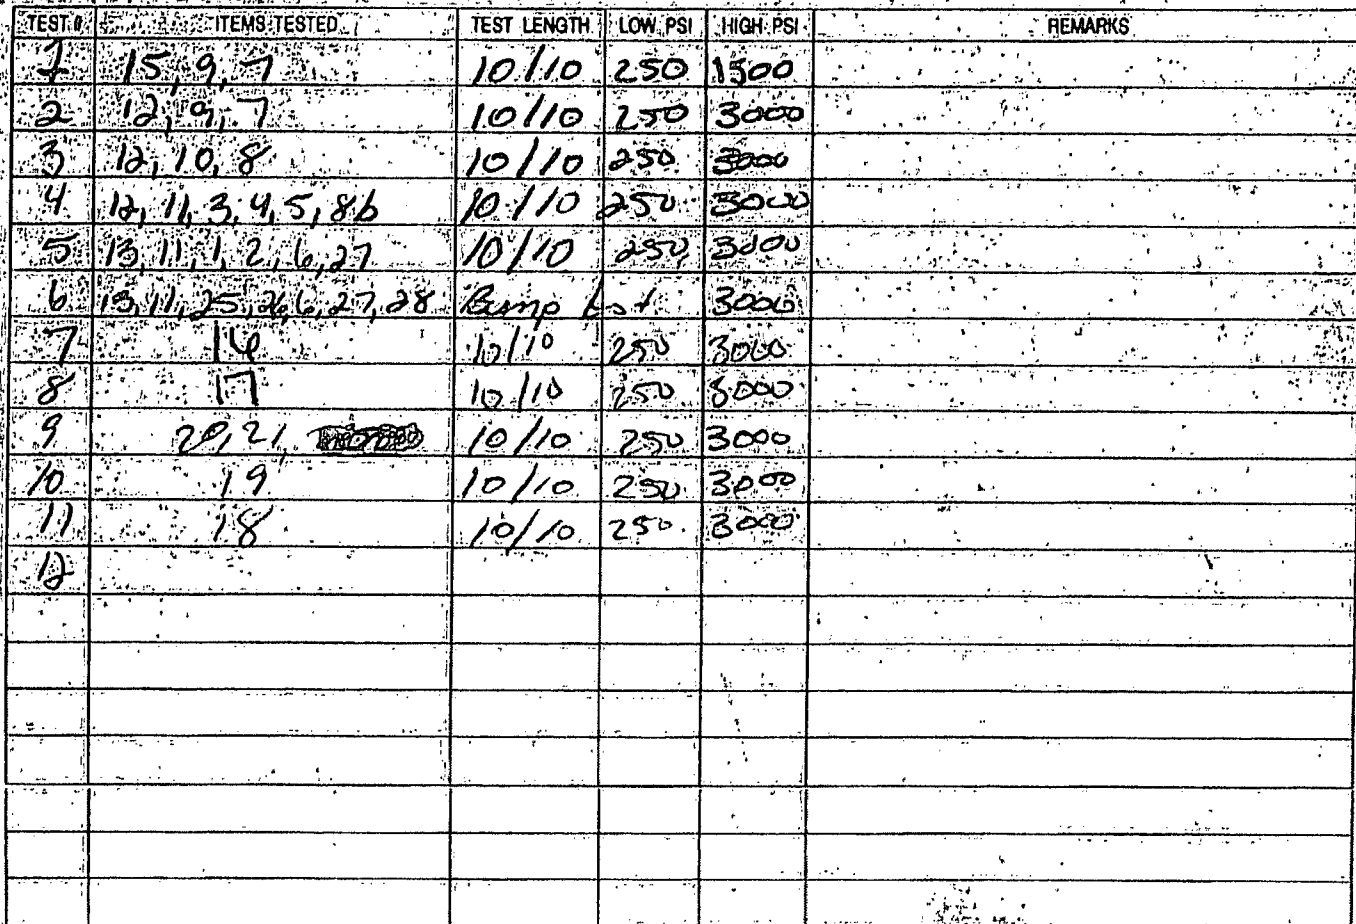 TEST # ITEMS TESTED TEST LENGTH LOW PSI HIGH PSI REMARKS
1 15, 9, 7 10/10 250 1500
2 12, 9, 7 10/10 250 3000
3 12, 10, 8 10/10 250 3000
4 12, 11, 3, 4, 5, 8b 10/10 250 3000
5 13, 11, 1, 2, 6, 27 10/10 250 3000
6 13, 11, 25, 26, 6, 27, 28 Bump test 3000
7 16 10/10 250 3000
8 17 10/10 250 3000
9 20, 21, 10/10 250 3000
10 19 10/10 250 3000
11 18 10/10 250 3000
12